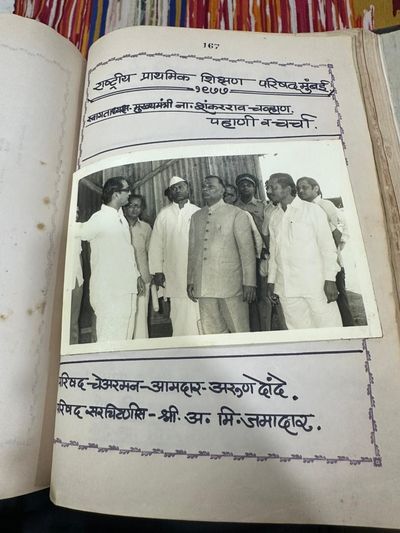 167
राष्ट्रीय प्राथमिक शिक्षण परिषद मुंबई
१९७७
स्वागताध्यक्ष मुख्यमंत्री ना. शंकरराव चव्हाण.
पहाणी व चर्चा.
परिषद-चेअरमन-आमदार-अरुण दोंदे.
परिषद सरचिटणीस-श्री. अ. मि. जमादार.